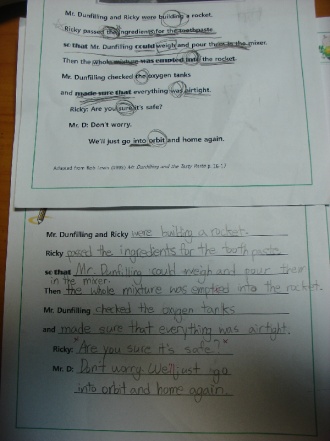 Mr. Dunfilling and Ricky were building a rocket.
Ricky passed the ingredients for the toothpaste
so that Mr. Dunfilling could weigh and pour them in the mixer.
Then the whole mixture was emptied into the rocket.
Mr. Dunfilling checked the oxygen tanks
and made sure that everything was airtight.
Ricky: Are you sure it's safe?
Mr. D: Don't worry.
We'll just go into orbit and home again.
Mr. Dunfilling and Ricky were building a rocket.
Ricky passed the ingredients for the tooth paste
so that Mr. Dunfilling could weigh and pour them
in the mixer.
Then the whole mixture was emptied into the rocket.
Mr. Dunfilling checked the oxygen tanks
and made sure that everything was airtight.
Ricky: "Are you sure it's safe?"
Mr. D: Don't worry. We'll just go
into orbit and home again.